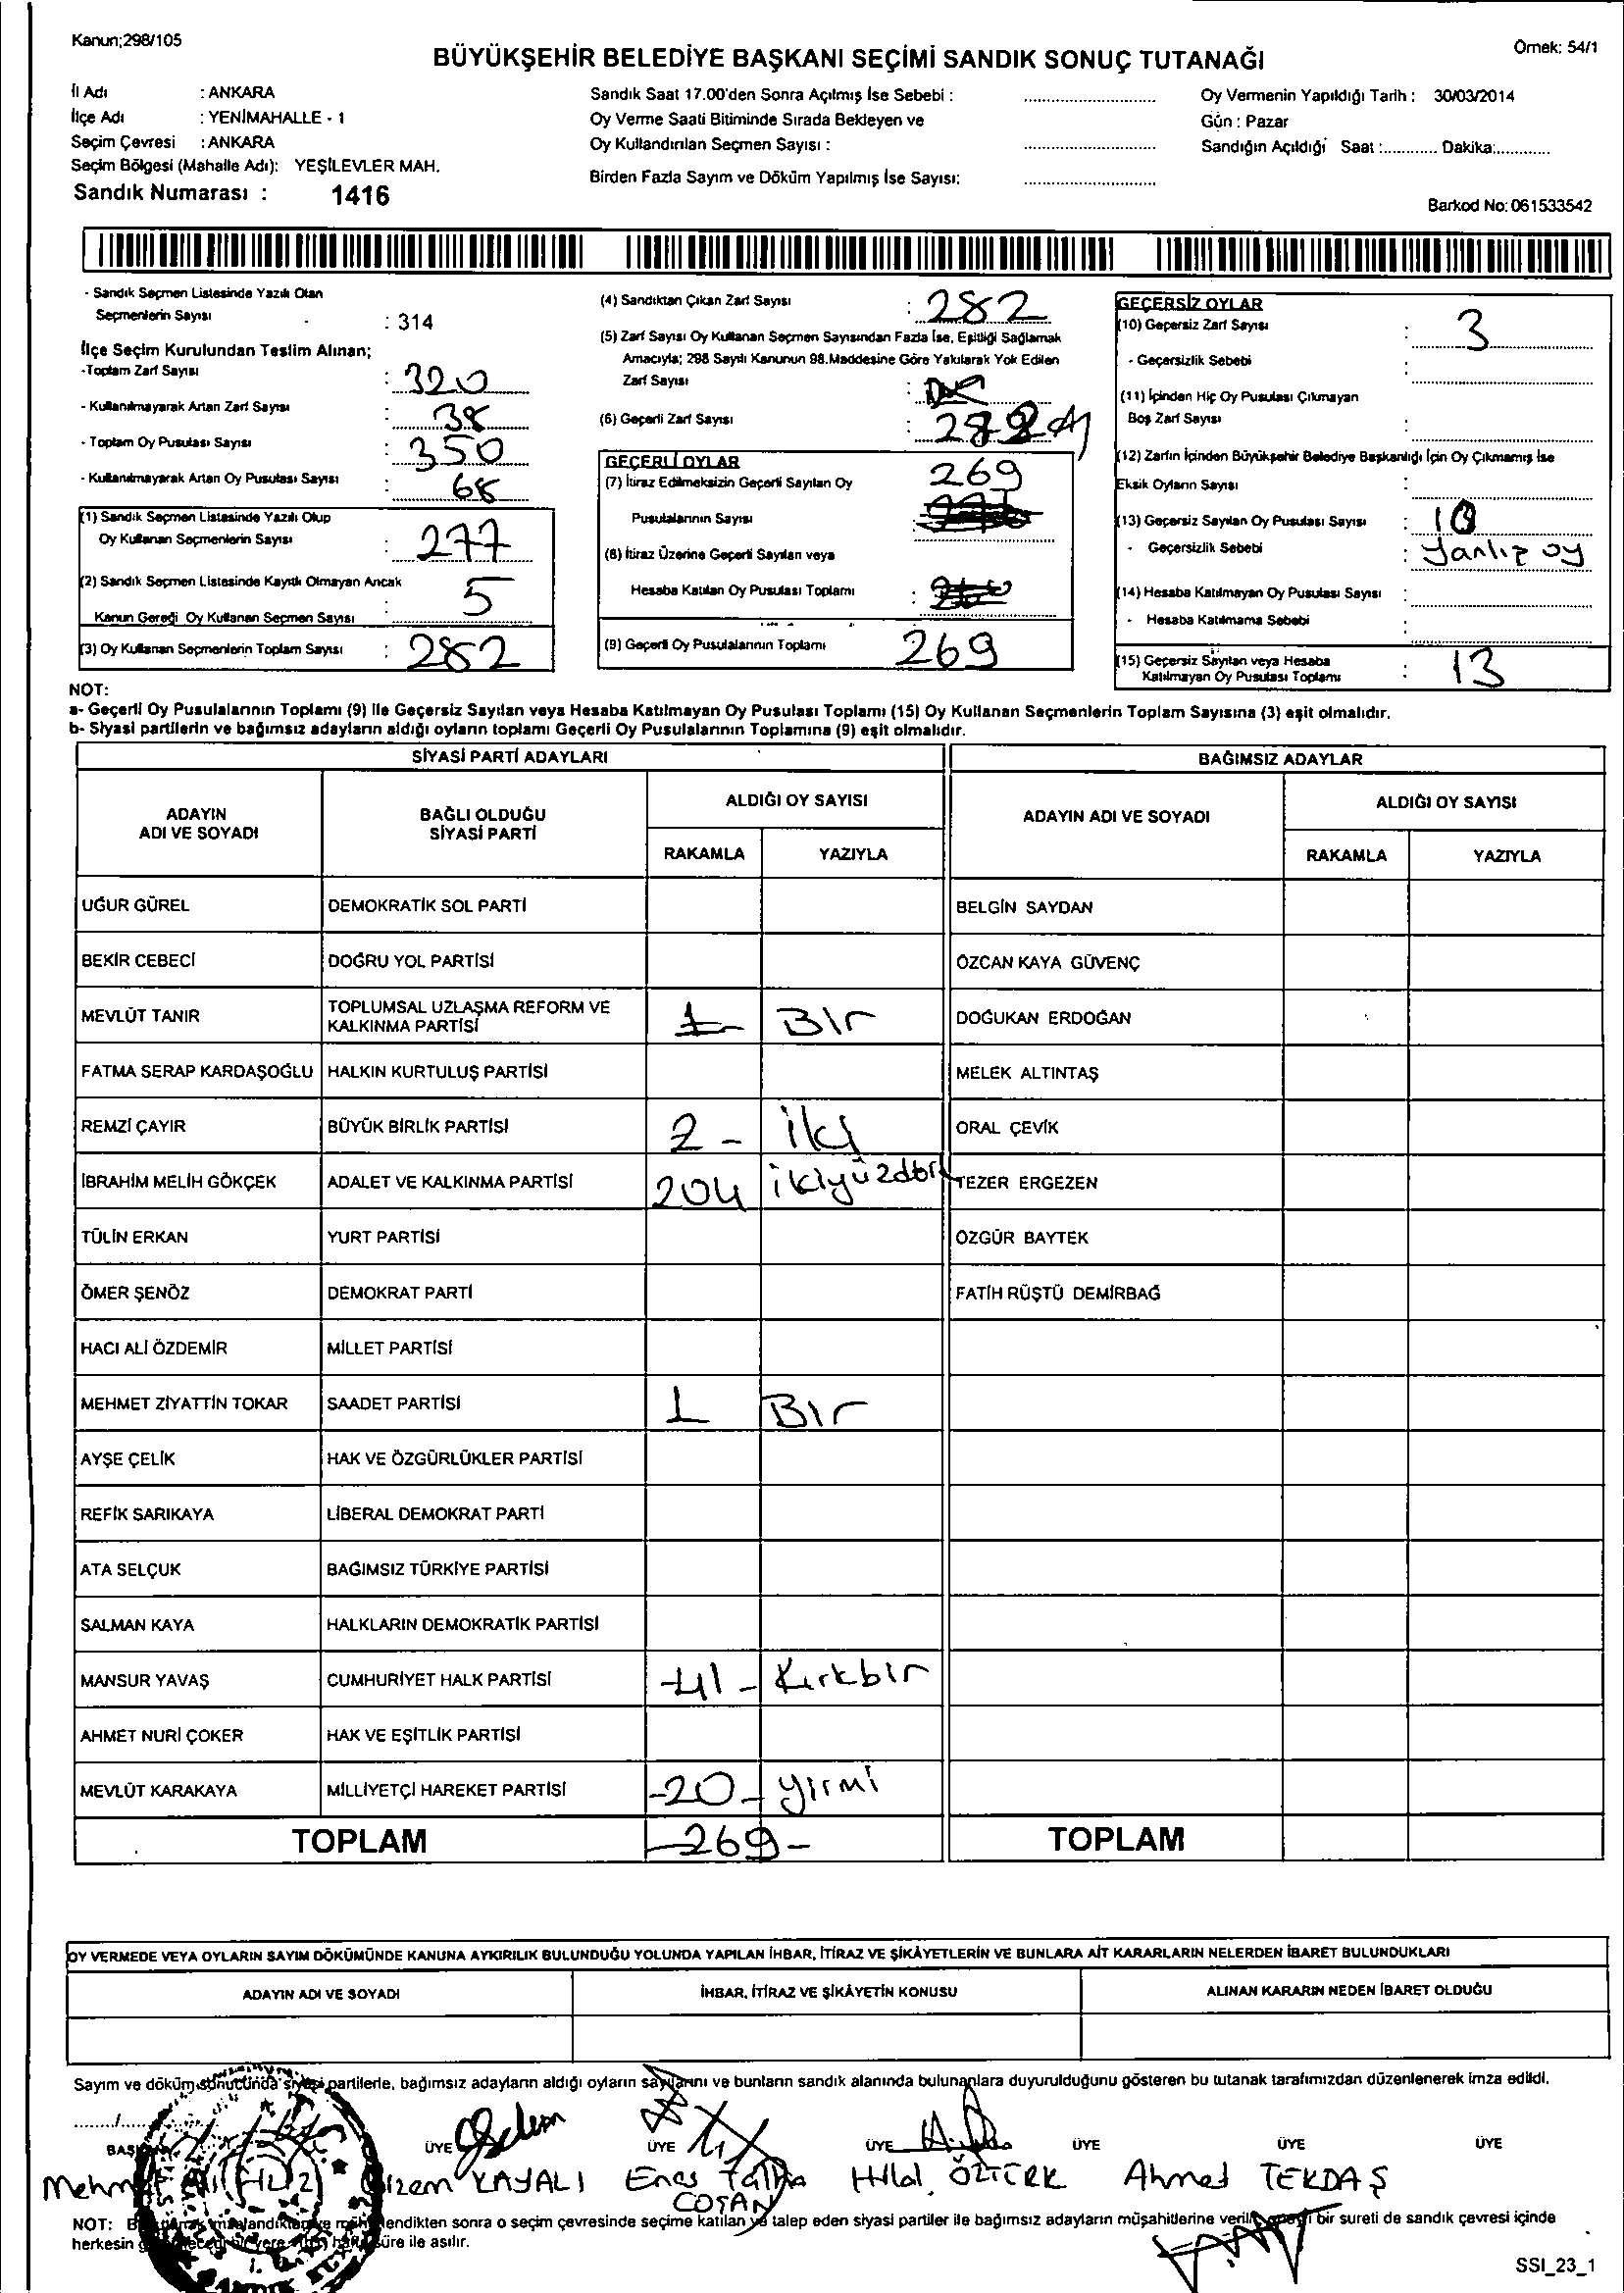 Kanun;298/105
Örnek: 54/1
BÜYÜKŞEHİR BELEDİYE BAŞKANI SEÇİMİ SANDIK SONUÇ TUTANAĞI
İl Adı : ANKARA
İlçe Adı : YENİMAHALLE - 1
Seçim Çevresi : ANKARA
Seçim Bölgesi (Mahalle Adı): YEŞİLEVLER MAH.
Sandık Numarası : 1416
Sandık Saat 17.00'den Sonra Açılmış İse Sebebi :
Oy Verme Saati Bitiminde Sırada Bekleyen ve
Oy Kullandırılan Seçmen Sayısı :
Birden Fazla Sayım ve Döküm Yapılmış İse Sayısı:
Oy Vermenin Yapıldığı Tarih : 30/03/2014
Gün : Pazar
Sandığın Açıldığı Saat :............ Dakika:............
Barkod No: 061533542
- Sandık Seçmen Listesinde Yazılı Olan
Seçmenlerin Sayısı : 314
İlçe Seçim Kurulundan Teslim Alınan;
-Toplam Zarf Sayısı : 320
- Kullanılmayarak Artan Zarf Sayısı : 38
- Toplam Oy Pusulası Sayısı : 350
- Kullanılmayarak Artan Oy Pusulası Sayısı : 68
(1) Sandık Seçmen Listesinde Yazılı Olup
Oy Kullanan Seçmenlerin Sayısı : 277
(2) Sandık Seçmen Listesinde Kayıtlı Olmayan Ancak
Kanun Gereği Oy Kullanan Seçmen Sayısı : 5
(3) Oy Kullanan Seçmenlerin Toplam Sayısı : 282
(4) Sandıktan Çıkan Zarf Sayısı : 282
(5) Zarf Sayısı Oy Kullanan Seçmen Sayısından Fazla İse, Eşitliği Sağlamak
Amacıyla; 298 Sayılı Kanunun 98.Maddesine Göre Yakılarak Yok Edilen
Zarf Sayısı :
(6) Geçerli Zarf Sayısı :
GEÇERLİ OYLAR
(7) İtiraz Edilmeksizin Geçerli Sayılan Oy
Pusulalarının Sayısı : 269
(8) İtiraz Üzerine Geçerli Sayılan veya
Hesaba Katılan Oy Pusulası Toplamı :
(9) Geçerli Oy Pusulalarının Toplamı 269
GEÇERSİZ OYLAR
(10) Geçersiz Zarf Sayısı : 3
- Geçersizlik Sebebi :
(11) İçinden Hiç Oy Pusulası Çıkmayan
Boş Zarf Sayısı :
(12) Zarfın İçinden Büyükşehir Belediye Başkanlığı İçin Oy Çıkmamış İse
Eksik Oyların Sayısı :
(13) Geçersiz Sayılan Oy Pusulası Sayısı : 10
- Geçersizlik Sebebi : Yanlız oy
(14) Hesaba Katılmayan Oy Pusulası Sayısı :
- Hesaba Katılmama Sebebi :
(15) Geçersiz Sayılan veya Hesaba
Katılmayan Oy Pusulası Toplamı : 13
NOT:
a- Geçerli Oy Pusulalarının Toplamı (9) ile Geçersiz Sayılan veya Hesaba Katılmayan Oy Pusulası Toplamı (15) Oy Kullanan Seçmenlerin Toplam Sayısına (3) eşit olmalıdır.
b- Siyasi partilerin ve bağımsız adayların aldığı oyların toplamı Geçerli Oy Pusulalarının Toplamına (9) eşit olmalıdır.
SİYASİ PARTİ ADAYLARI
BAĞIMSIZ ADAYLAR
ADAYIN ADI VE SOYADI
BAĞLI OLDUĞU SİYASİ PARTİ
ALDIĞI OY SAYISI
RAKAMLA YAZIYLA
ADAYIN ADI VE SOYADI
ALDIĞI OY SAYISI
RAKAMLA YAZIYLA
UĞUR GÜREL DEMOKRATİK SOL PARTİ BELGİN SAYDAN
BEKİR CEBECİ DOĞRU YOL PARTİSİ ÖZCAN KAYA GÜVENÇ
MEVLÜT TANIR TOPLUMSAL UZLAŞMA REFORM VE KALKINMA PARTİSİ 1 Bir DOĞUKAN ERDOĞAN
FATMA SERAP KARDAŞOĞLU HALKIN KURTULUŞ PARTİSİ MELEK ALTINTAŞ
REMZİ ÇAYIR BÜYÜK BİRLİK PARTİSİ 2 - iki ORAL ÇEVİK
İBRAHİM MELİH GÖKÇEK ADALET VE KALKINMA PARTİSİ 204 ikiyüzdört TEZER ERGEZEN
TÜLİN ERKAN YURT PARTİSİ ÖZGÜR BAYTEK
ÖMER ŞENÖZ DEMOKRAT PARTİ FATİH RÜŞTÜ DEMİRBAĞ
HACI ALİ ÖZDEMİR MİLLET PARTİSİ
MEHMET ZİYATTİN TOKAR SAADET PARTİSİ 1 Bir
AYŞE ÇELİK HAK VE ÖZGÜRLÜKLER PARTİSİ
REFİK SARIKAYA LİBERAL DEMOKRAT PARTİ
ATA SELÇUK BAĞIMSIZ TÜRKİYE PARTİSİ
SALMAN KAYA HALKLARIN DEMOKRATİK PARTİSİ
MANSUR YAVAŞ CUMHURİYET HALK PARTİSİ -41- Kırkbir
AHMET NURİ ÇOKER HAK VE EŞİTLİK PARTİSİ
MEVLÜT KARAKAYA MİLLİYETÇİ HAREKET PARTİSİ -20- yirmi
TOPLAM -269- TOPLAM
OY VERMEDE VEYA OYLARIN SAYIM DÖKÜMÜNDE KANUNA AYKIRILIK BULUNDUĞU YOLUNDA YAPILAN İHBAR, İTİRAZ VE ŞİKÂYETLERİN VE BUNLARA AİT KARARLARIN NELERDEN İBARET BULUNDUKLARI
ADAYIN ADI VE SOYADI İHBAR, İTİRAZ VE ŞİKÂYETİN KONUSU ALINAN KARARIN NEDEN İBARET OLDUĞU
Sayım ve döküm sonucunda siyasi partilerle, bağımsız adayların aldığı oyların sayılarını ve bunların sandık alanında bulunanlara duyurulduğunu gösteren bu tutanak tarafımızdan düzenlenerek imza edildi.
ÜYE ÜYE ÜYE ÜYE ÜYE ÜYE
KAYALI Enes Talha COŞAN Hilal ÖZTÜRK Ahmet TEKDAŞ
NOT: lendikten sonra o seçim çevresinde seçime katılan ve talep eden siyasi partiler ile bağımsız adayların müşahitlerine verilir bir sureti de sandık çevresi içinde
herkesin süre ile asılır.
SSI_23_1